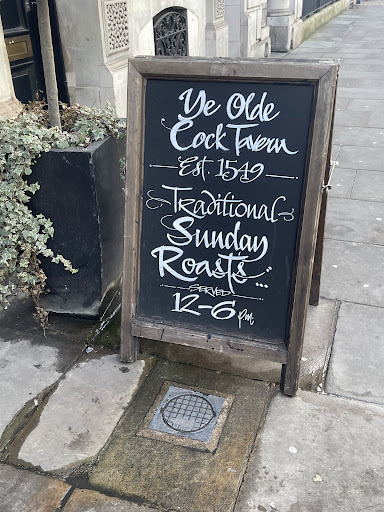 Ye Olde
Cock Tavern
Est. 1549
Traditional
Sunday
Roasts...
SERVED
12-6 pm